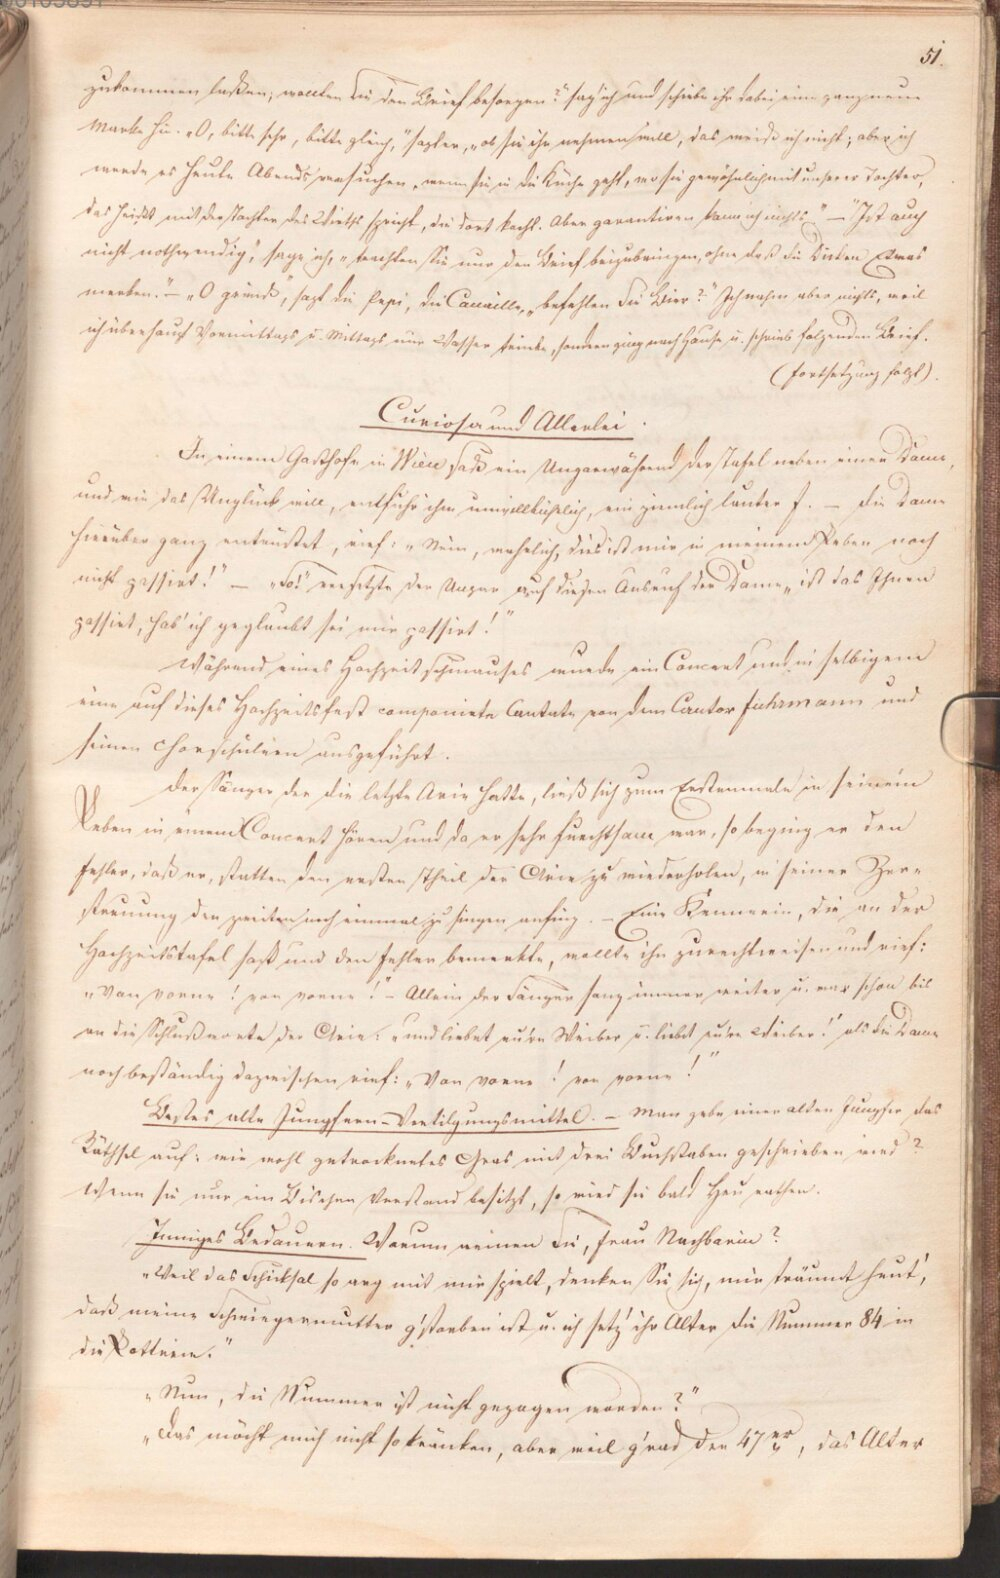 51.
zukommen laßen; wollen Sie den Brief besorgen?" sag' ich und schiebe ihr dabei eine ganz neue
Marke hin. „O, bitte sehr, bitte gleich," sagt er, „ob sie ihn nehmen will, das weiß ich nicht; aber ich
werde es heute Abends versuchen, wenn sie in die Küche geht, wo sie gewöhnlich mit unserer Tochter,
das heißt mit der Tochter des Wirths spricht, die dort kocht. Aber garantiren kann ich nichts." – „Ist auch
nicht nothwendig," sage ich, „trachten Sie nur den Brief beizubringen, ohne daß die Dicken Etwas
merken." – „O gewiß," sagt die Pepi, die Canaille, „befehlen Sie Bier?" Ich nahm aber nichts, weil
ich überhaupt Vormittags u. Mittags nur Wasser trinke, sondern ging nach Hause u. schrieb folgenden Brief.
(Fortsetzung folgt).
Curiosa und Allerlei.
In einem Gasthofe in Wien saß ein Ungar während der Tafel neben einer Dame,
und wie das Unglück will, entfuhr ihm unwillkührlich, ein ziemlich lauter f. – Die Dame
hierüber ganz entrüstet, rief: „Nein, wahrlich, dies ist mir in meinem Leben noch
nicht passirt!" – „So!" versetzte der Ungar auf diesen Ausruf der Dame „ist das Ihnen
passirt, hab' ich geglaubt sei mir passirt!"
Während eines Hochzeitschmauses wurde ein Concert und in selbigem
eine auf dieses Hochzeitsfest componirte Cantate von dem Cantor Fuhrmann und
seinen Chorschülern ausgeführt.
Der Sänger der die letzte Arie hatte, ließ sich zum Erstenmale in seinem
Leben in einem Concert hören und da er sehr furchtsam war, so beging er den
Fehler, daß er, statt den ersten Theil der Arie zu wiederholen, in seiner Zer-
streuung den zweiten noch einmal zu singen anfing. – Eine Kennerin, die an der
Hochzeitstafel saß und den Fehler bemerkte, wollte ihn zurechtweisen und rief:
„Von vorne! von vorne!" – Allein der Sänger sang immer weiter u. war schon bis
an die Schlußworte der Arie: „und liebet eu're Weiber u. liebt eu're Weiber!" als die Dame
noch beständig dazwischen rief: „Von vorne! von vorne!"
Bestes alte Jungfern-Vertilgungsmittel. – Man gebe einer alten Jungfer das
Räthsel auf: wie wohl getrocknetes Gras mit drei Buchstaben geschrieben wird?
Wenn sie nur ein Bischen Verstand besitzt, so wird sie bald Heu rathen.
Inniges Bedauern. Warum weinen Sie, Frau Nachbarin?
„Weil das Schicksal so arg mit mir spielt, denken Sie sich, mir träumt heut',
daß meine Schwiegermutter g'storben ist u. ich setz' ihr Alter die Nummer 84 in
die Lotterie."
„Nun, die Nummer ist nicht gezogen worden?"
„Das möcht mich nicht so kränken, aber weil g'rad der 47er, das Alter